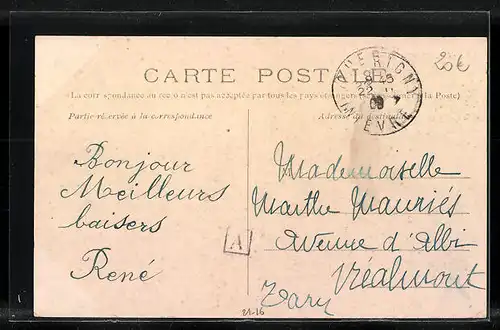 CARTE POSTALE
25€
GUERIGNY
8 25
22
09
NIEVRE
La correspondance au recto n'est pas acceptée par tous les pays étrangers (Se renseigner à la Poste)
Partie réservée à la correspondance
Adresse du destinataire
Bonjour
Meilleurs
baisers
René
Mademoiselle
Marthe Mauriés
Avenue d'Albi
Réalmont
Tarn
A
21-16